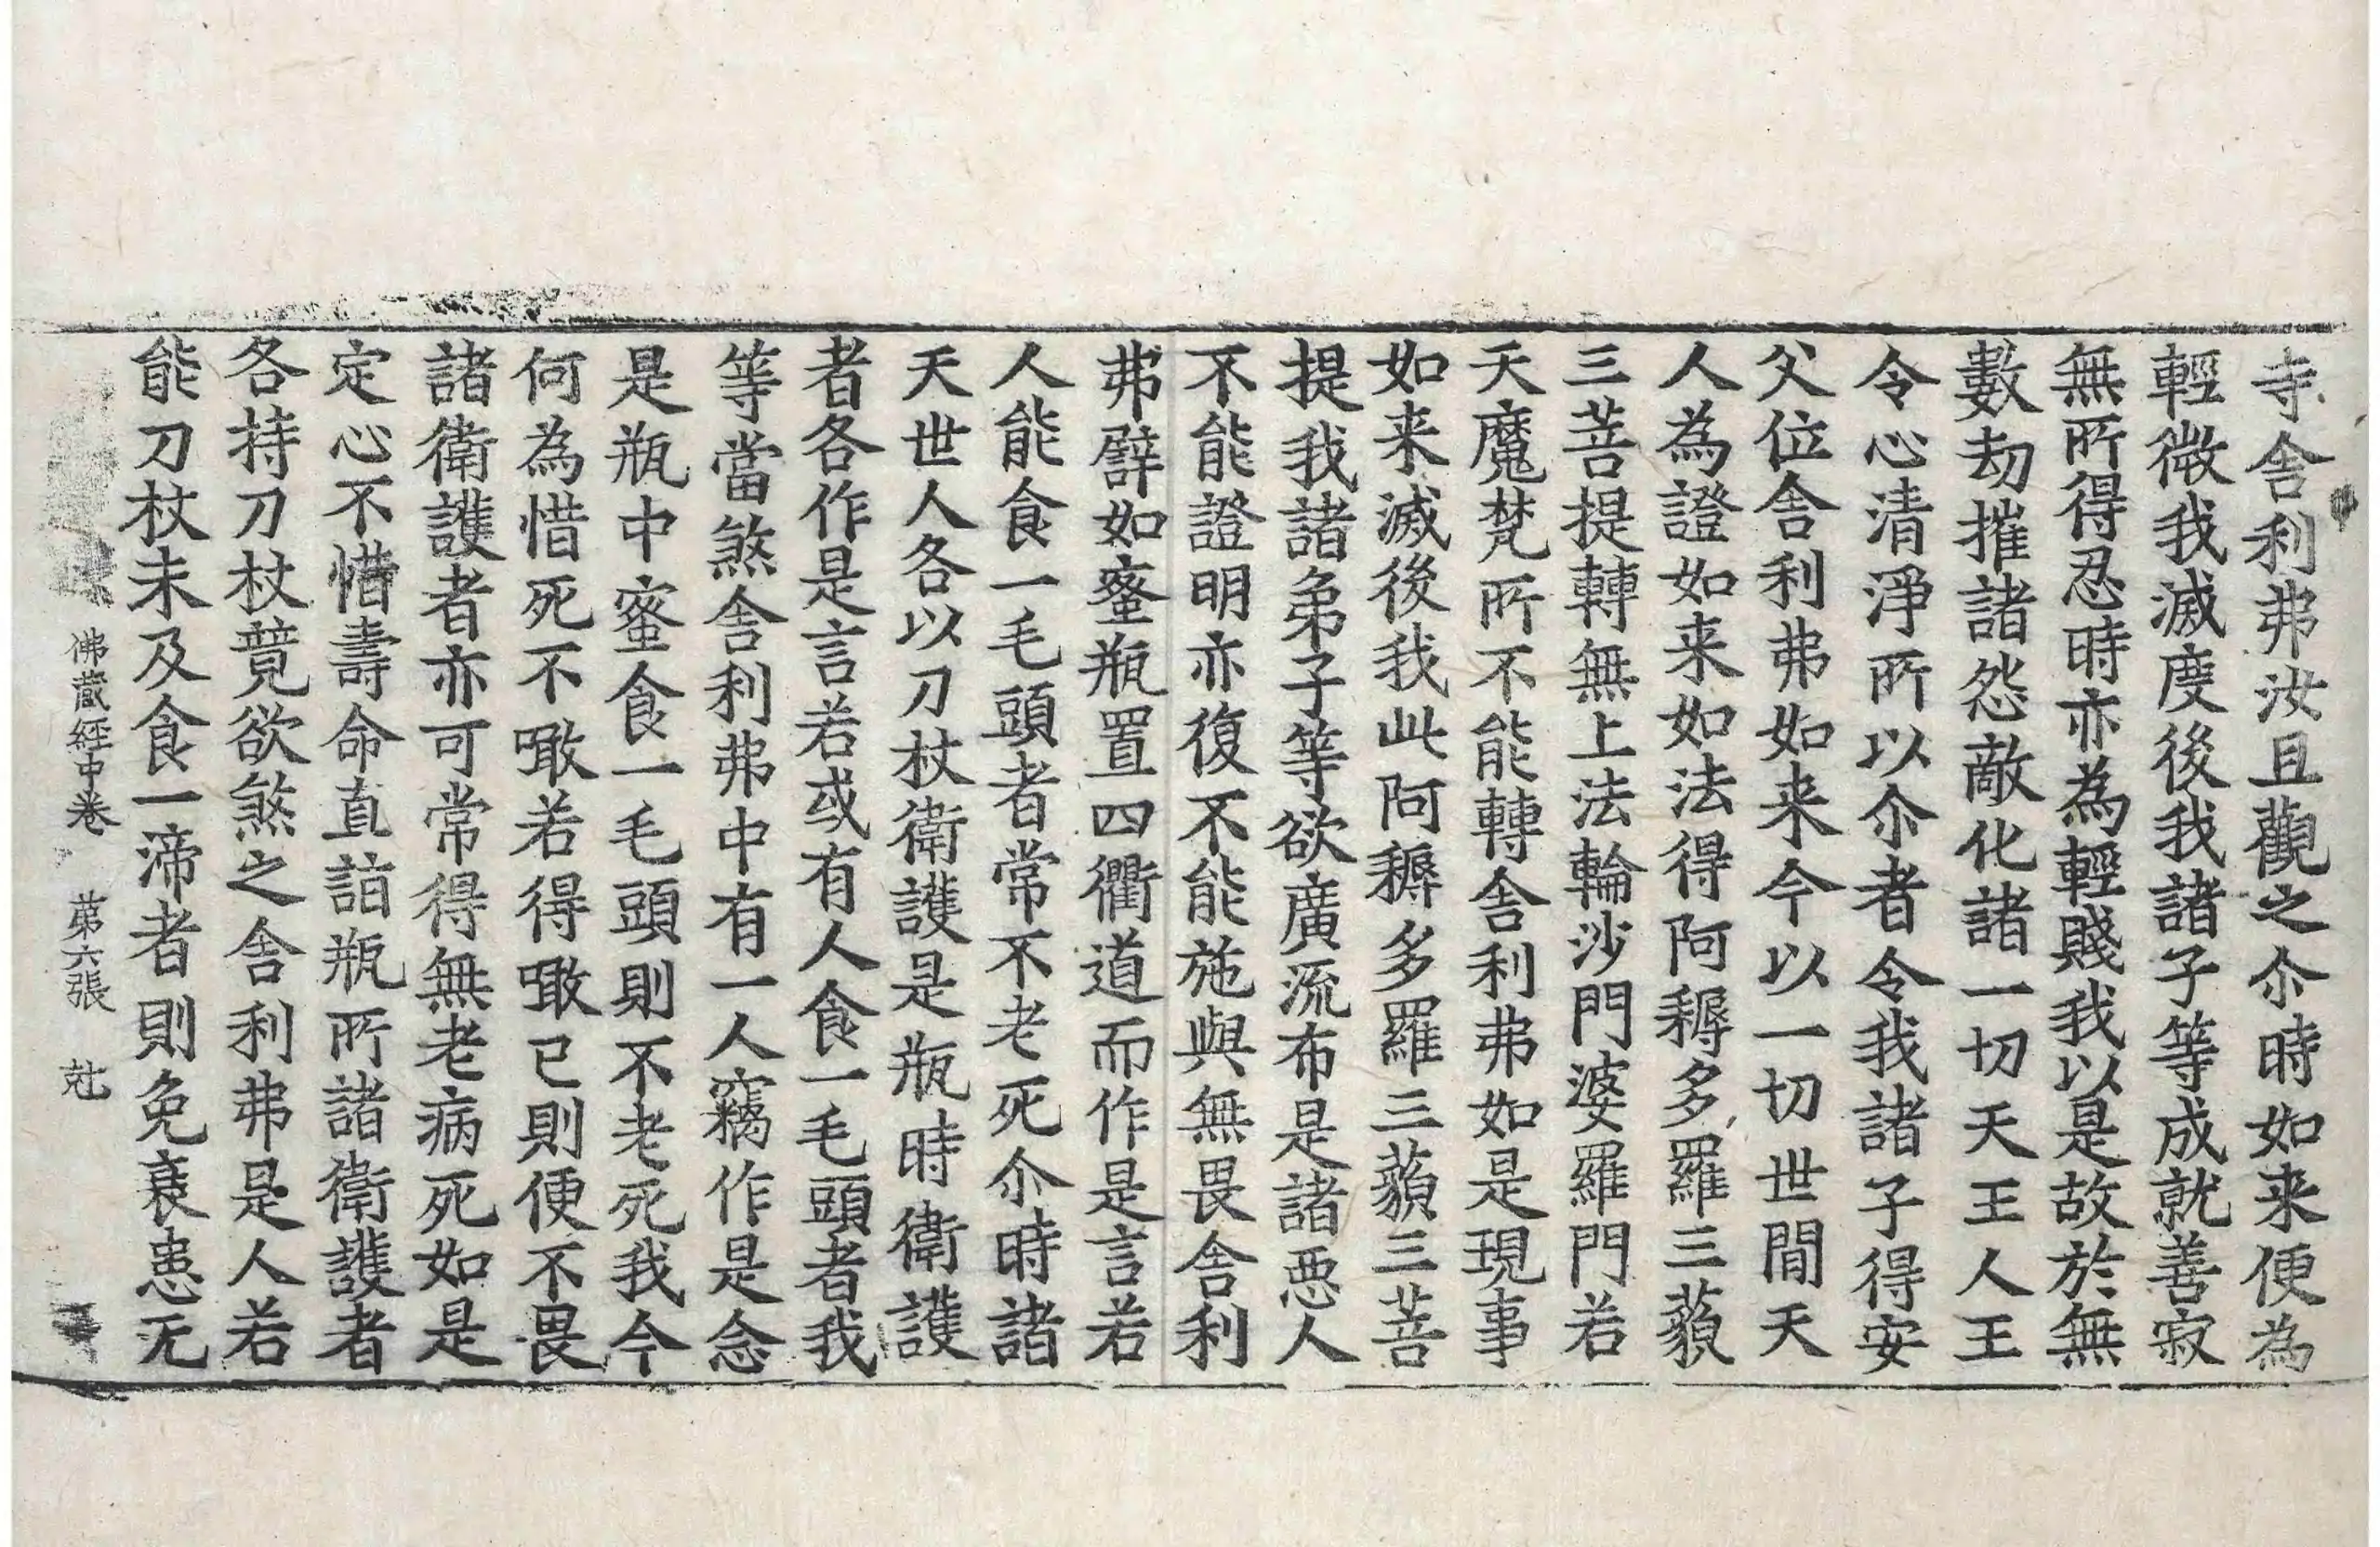 寺舍利弗汝且觀之尒時如来便為
輕微我滅度後我諸子等成就善寂
無所得忍時亦為輕賤我以是故於無
數劫摧諸怨敵化諸一切天王人王
令心清淨所以尒者令我諸子得安
父位舍利弗如来今以一切世閒天
人為證如来如法得阿耨多羅三藐
三菩提轉無上法輪沙門婆羅門若
天魔梵所不能轉舍利弗如是現事
如来滅後我此阿耨多羅三藐三菩
提我諸弟子等欲廣流布是諸惡人
不能證明亦復不能施與無畏舍利
弗譬如蜜瓶置四衢道而作是言若
人能食一毛頭者常不老死尒時諸
天世人各以刀杖衛護是瓶時衛護
者各作是言若或有人食一毛頭者我
等當煞舍利弗中有一人竊作是念
是瓶中蜜食一毛頭則不老死我今
何為惜死不噉若得噉已則便不畏
諸衛護者亦可常得無老病死如是
定心不惜壽命直詣瓶所諸衛護者
各持刀杖竟欲煞之舍利弗是人若
能刀杖未及食一渧者則免衰患无
佛藏經中卷 第六張 尅